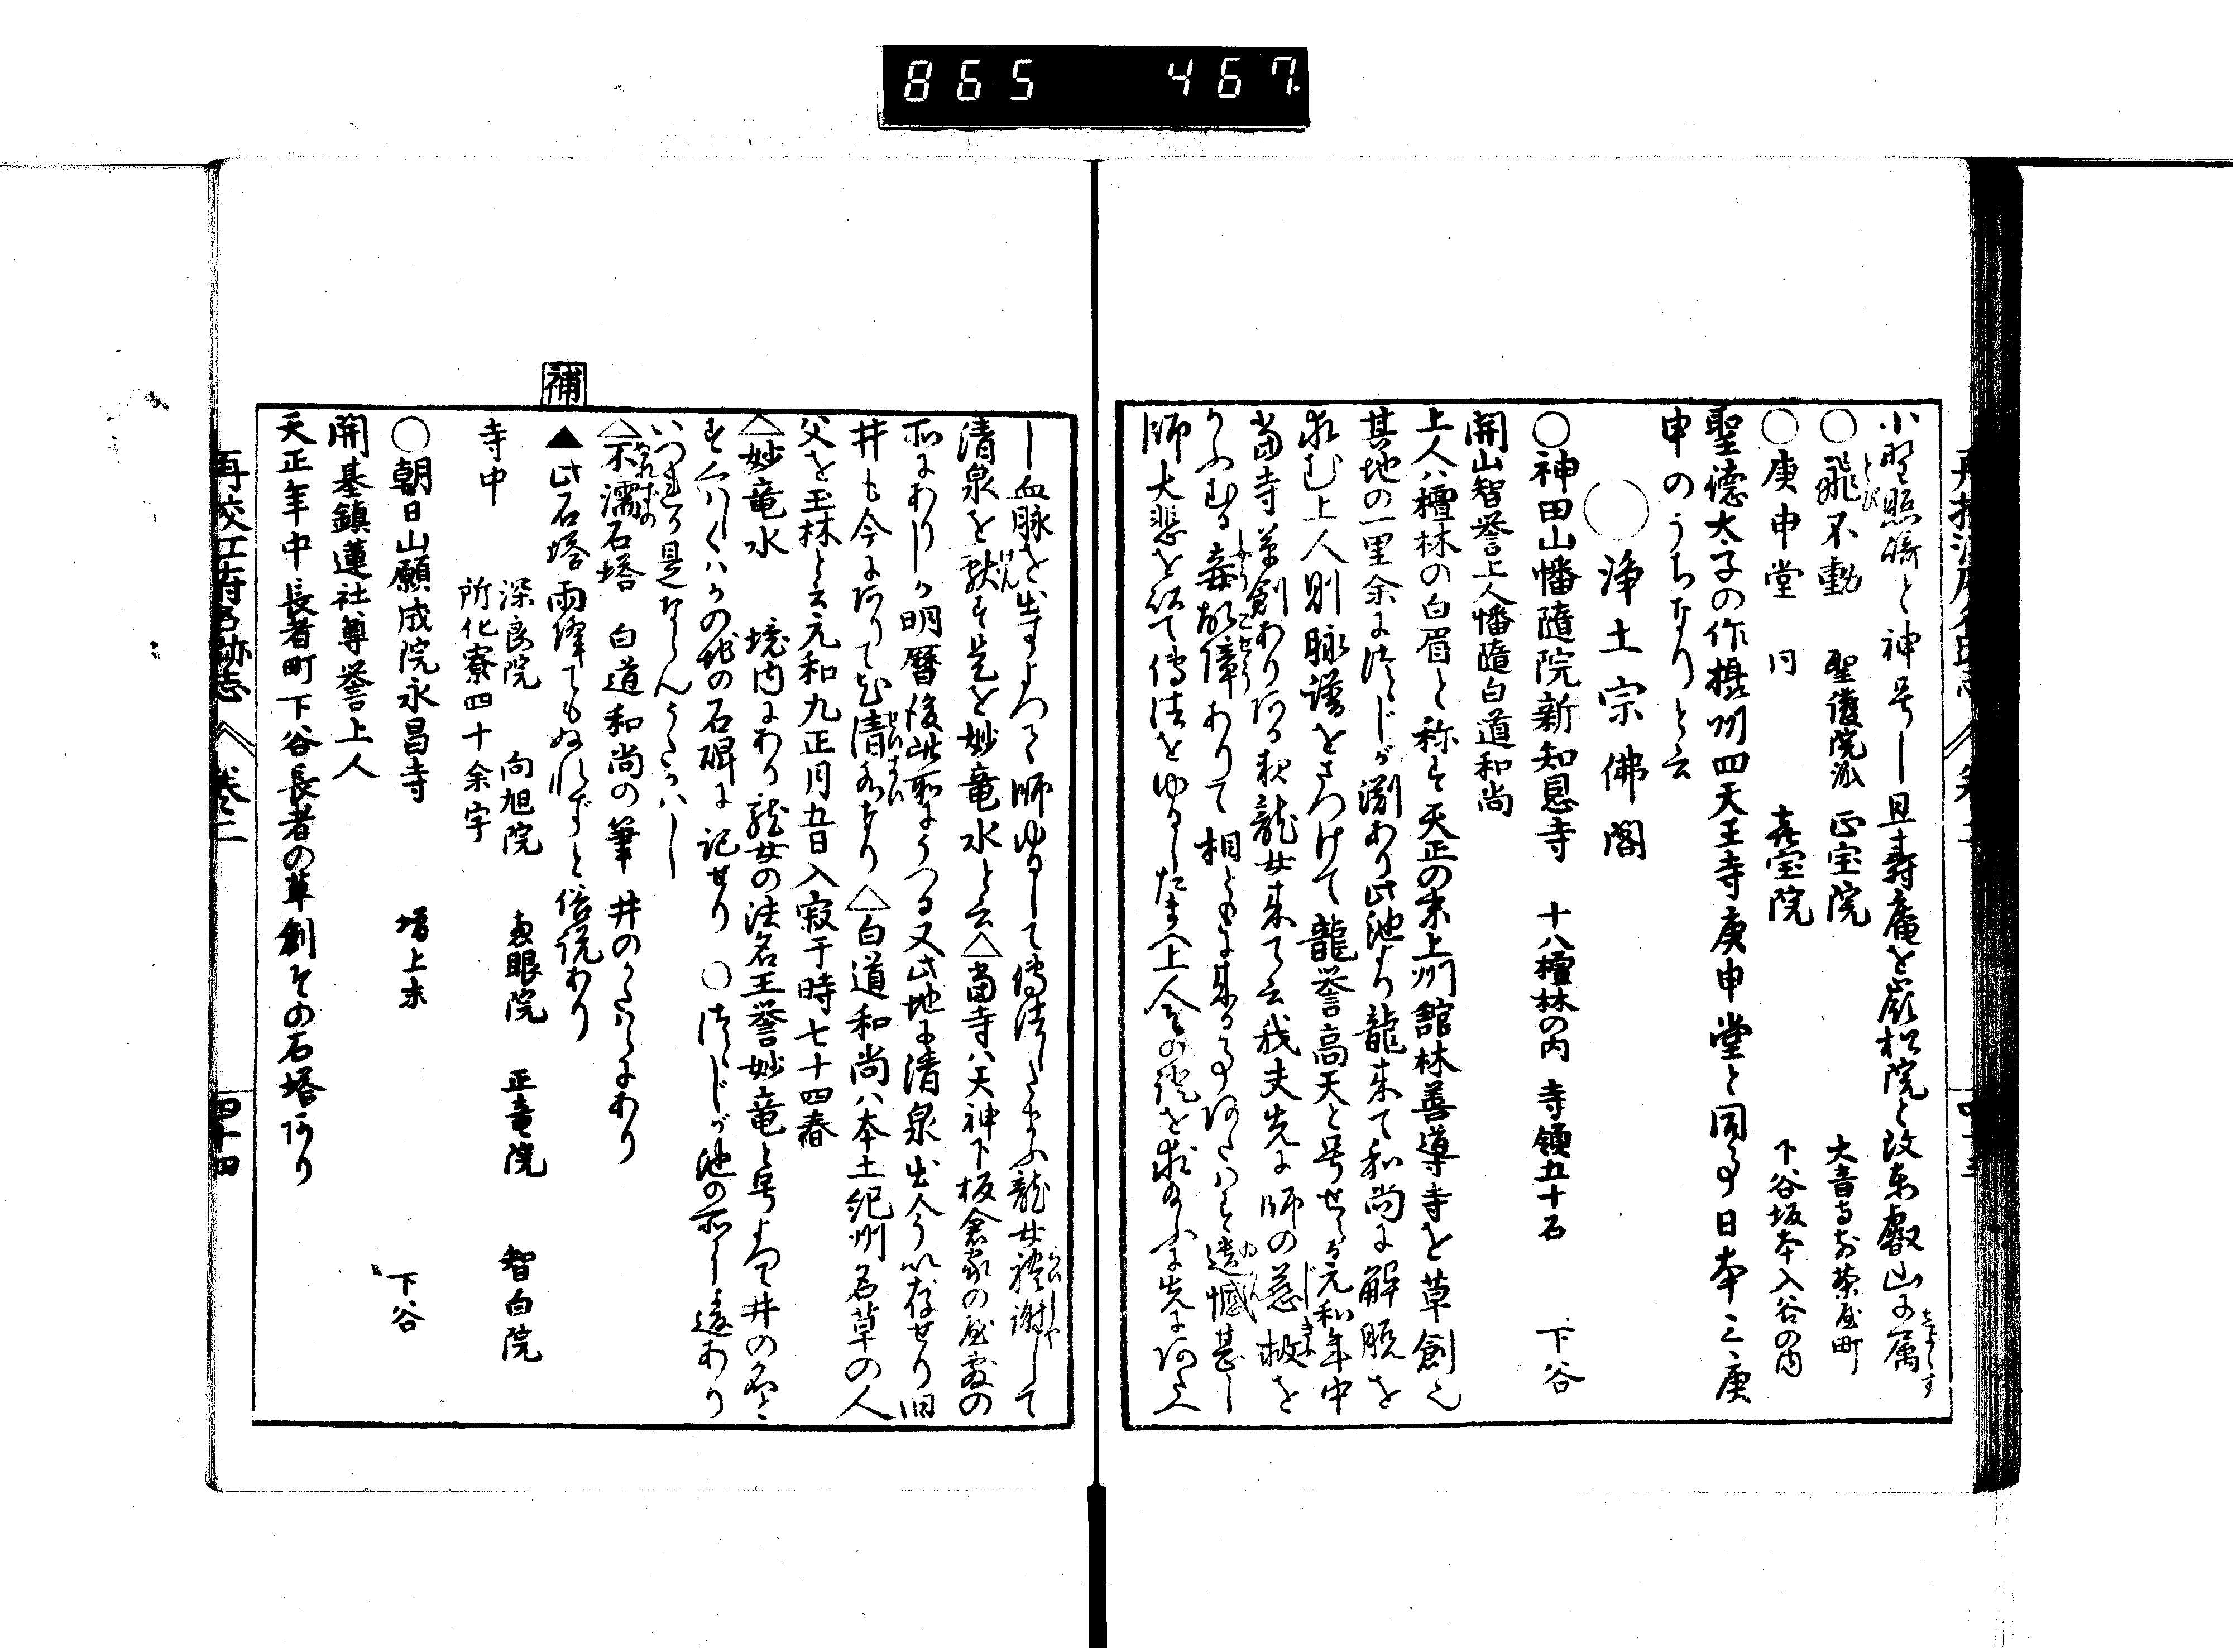 865 467
小野照崎と神号し且壽庵を嶺松院と改東叡山に属す
○飛不動 聖護院派 正宝院 大音寺前茶屋町
○庚申堂 同 喜宝院 下谷坂本入谷の内
聖徳太子の作摂州四天王寺庚申堂と同事日本三庚
申のうちなりと云
○浄土宗佛閣
○神田山幡随院新知恩寺 十八檀林の内 寺領五十石 下谷
開山智誉上人幡随白道和尚
上人ハ檀林の白眉と称す天正の末上州舘林善導寺を草創し
其地の一里余につゝじが渕あり此池より龍来て和尚に解脱を
求む上人則脉譜をさづけて龍誉高天と号せらる元和年中
當寺草創あり ある夜龍女来て云我夫先に師の慈救を
かふむる 障ありて相ともに来る事あたハず遺憾甚し
師大悲を以て傳法をゆるしたまへ上人その證を求め給ふに先にあたへ
し血脉を出すよつて師ゆるして傳法したまふ龍女禮謝して
清泉を献ず是を妙竜水と云△當寺ハ天神下板倉家の屋敷の
所にありしか明暦後此所にうつる又此地に清泉出今以存せり旧
井も今にありて尤清水なり△白道和尚ハ本土紀州名草の人
父を玉林と云元和九正月五日入寂于時七十四春
△妙竜水 境内にあり龍女の法名王誉妙竜と号よつて井の名とす
くハしくハかの地の石碑に記せり ○つゝじが池の所し違あり
いつれか是ならんうたがハし
△不濡石塔 白道和尚の筆 井のかたハらにあり
補
▲此石塔雨降てもぬれずと俗説あり
寺中 深良院 向旭院 恵眼院 正竜院 智白院
所化寮四十余宇
○朝日山願成院永昌寺 増上末 下谷
開基鎮蓮社尊誉上人
天正年中長者町下谷長者の草創その石塔あり
再校江戸名跡志 巻之二 四十四